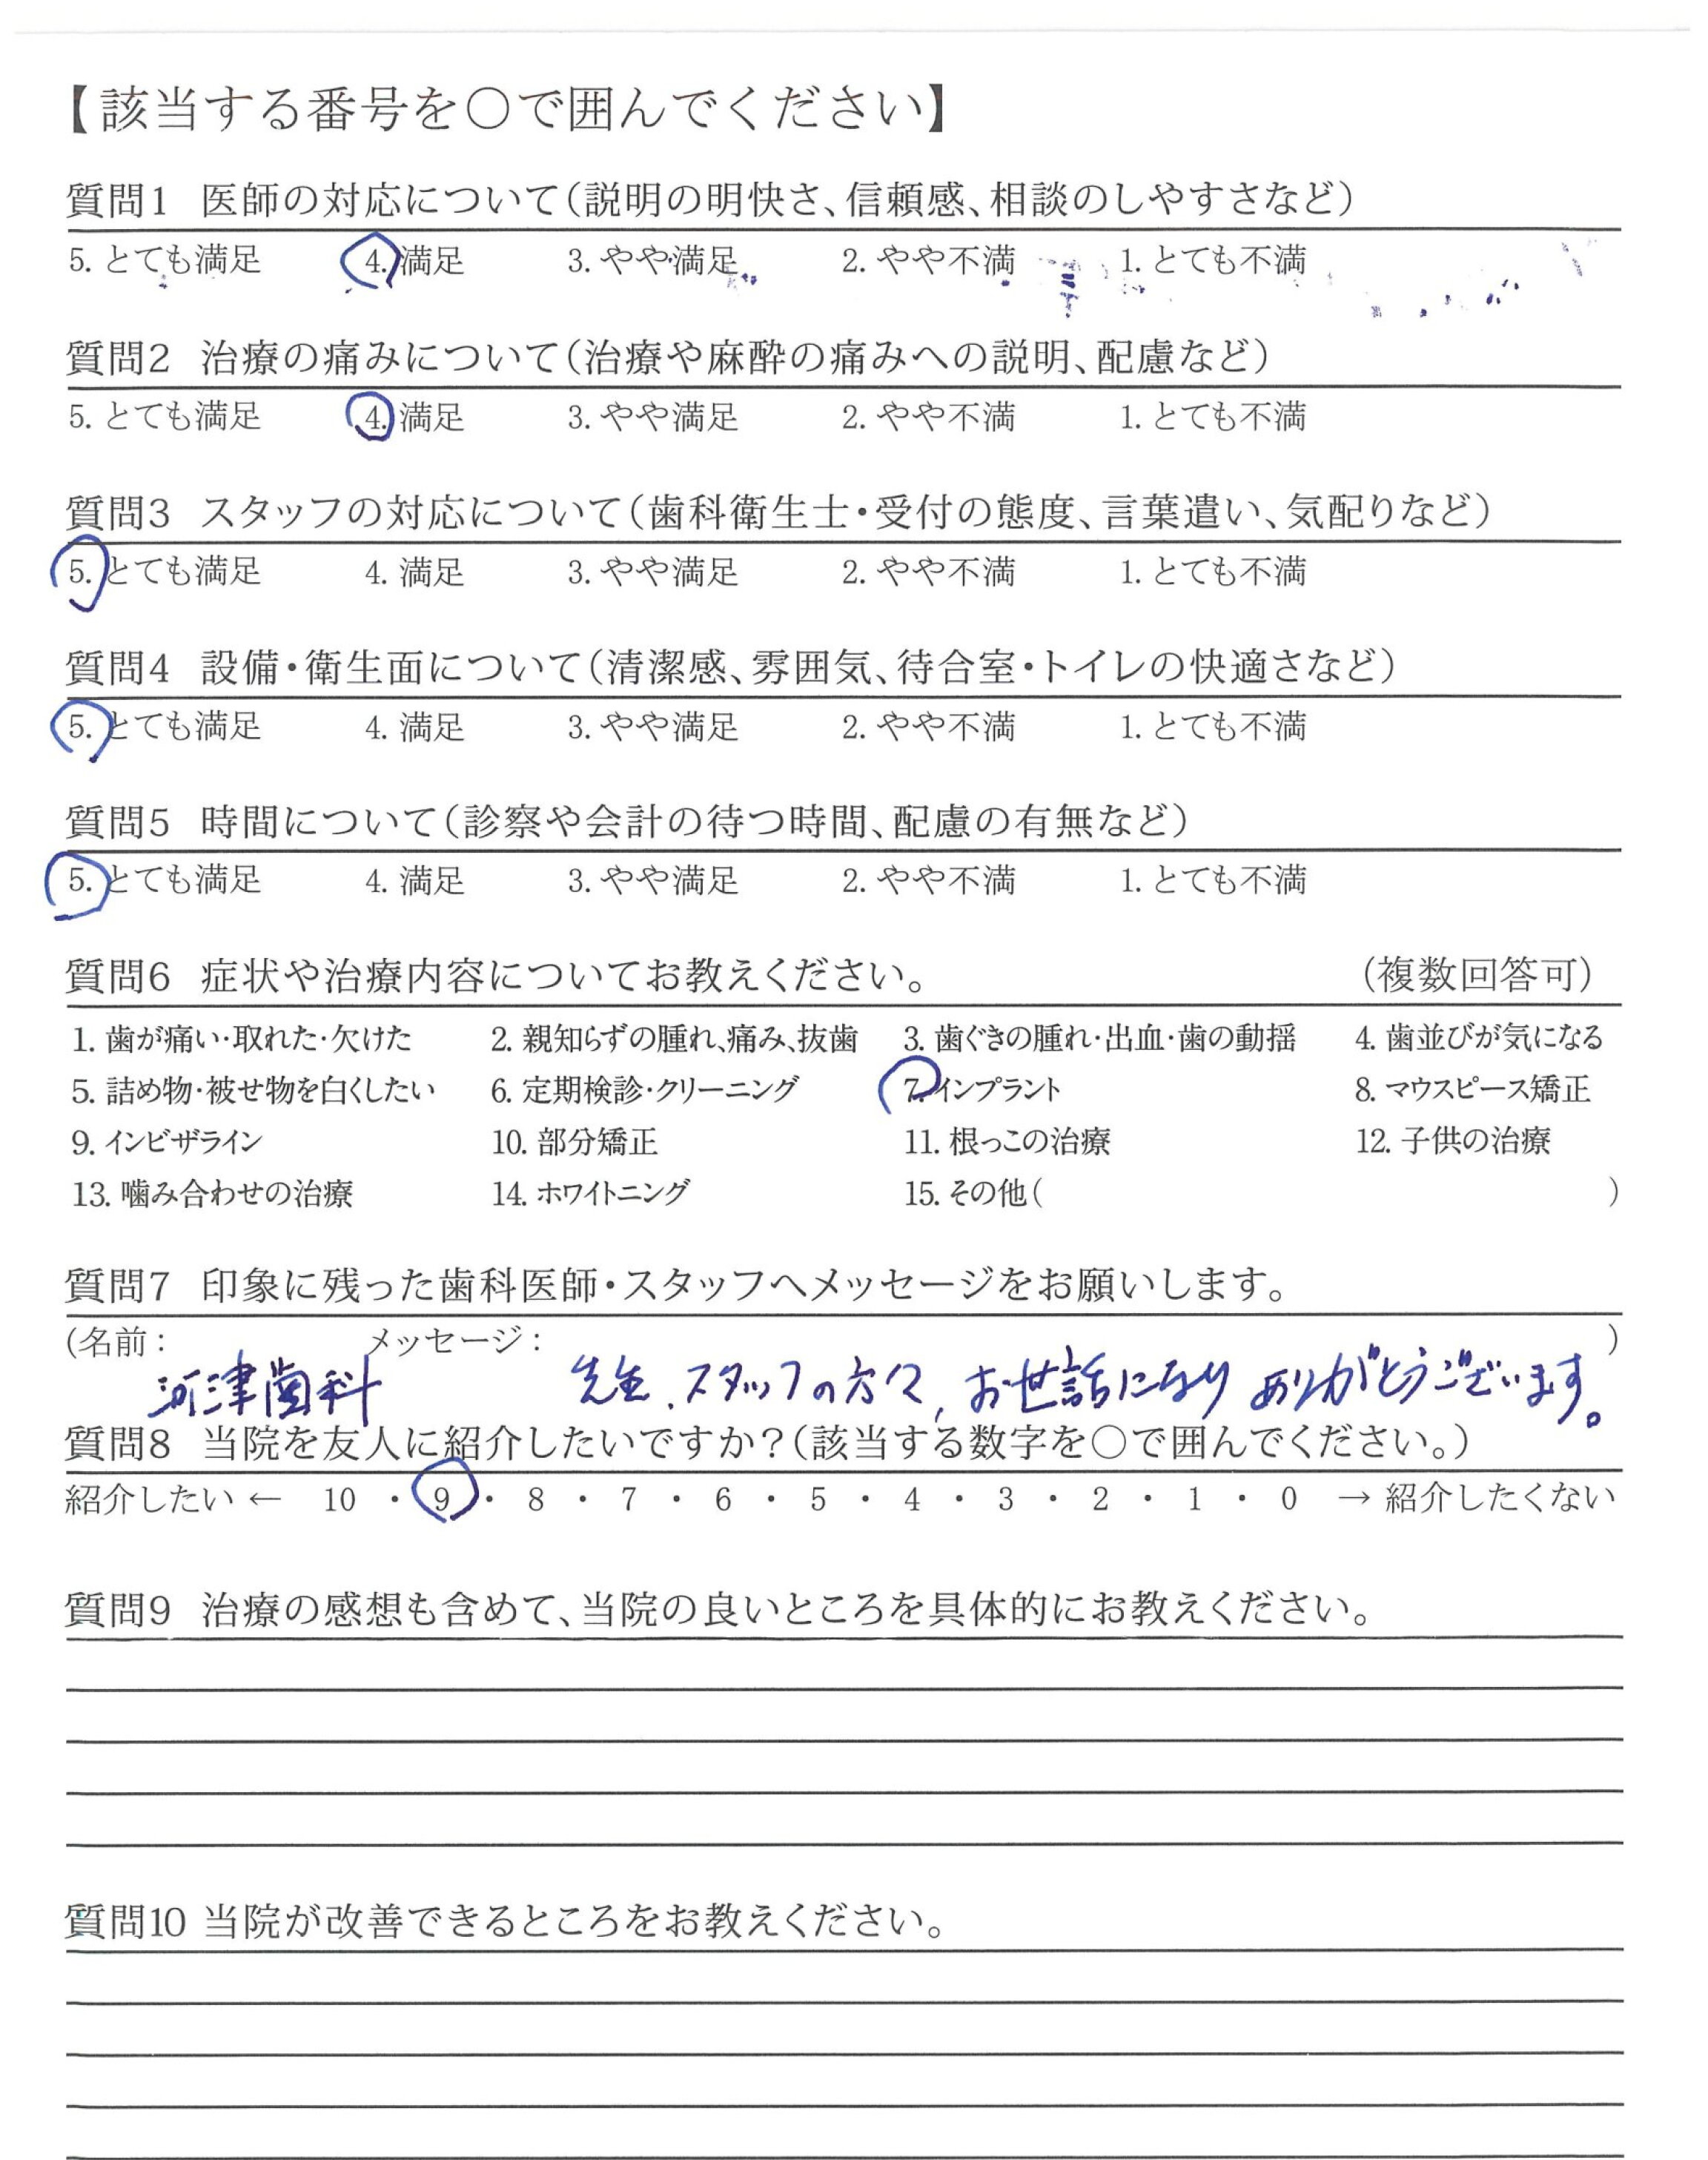 【該当する番号を〇で囲んでください】
質問1 医師の対応について(説明の明快さ、信頼感、相談のしやすさなど)
5. とても満足 4. 満足 3. やや満足 2. やや不満 1. とても不満
質問2 治療の痛みについて(治療や麻酔の痛みへの説明、配慮など)
5. とても満足 4. 満足 3. やや満足 2. やや不満 1. とても不満
質問3 スタッフの対応について(歯科衛生士・受付の態度、言葉遣い、気配りなど)
5. とても満足 4. 満足 3. やや満足 2. やや不満 1. とても不満
質問4 設備・衛生面について(清潔感、雰囲気、待合室・トイレの快適さなど)
5. とても満足 4. 満足 3. やや満足 2. やや不満 1. とても不満
質問5 時間について(診察や会計の待つ時間、配慮の有無など)
5. とても満足 4. 満足 3. やや満足 2. やや不満 1. とても不満
質問6 症状や治療内容についてお教えください。 (複数回答可)
1. 歯が痛い・取れた・欠けた 2. 親知らずの腫れ、痛み、抜歯 3. 歯ぐきの腫れ・出血・歯の動揺 4. 歯並びが気になる
5. 詰め物・被せ物を白くしたい 6. 定期検診・クリーニング 7. インプラント 8. マウスピース矯正
9. インビザライン 10. 部分矯正 11. 根っこの治療 12. 子供の治療
13. 噛み合わせの治療 14. ホワイトニング 15. その他( )
質問7 印象に残った歯科医師・スタッフへメッセージをお願いします。
(名前: メッセージ: )
河津歯科 先生、スタッフの方々、お世話になりありがとうございます。
質問8 当院を友人に紹介したいですか?(該当する数字を〇で囲んでください。)
紹介したい ← 10 ・ 9 ・ 8 ・ 7 ・ 6 ・ 5 ・ 4 ・ 3 ・ 2 ・ 1 ・ 0 → 紹介したくない
質問9 治療の感想も含めて、当院の良いところを具体的にお教えください。
質問10 当院が改善できるところをお教えください。